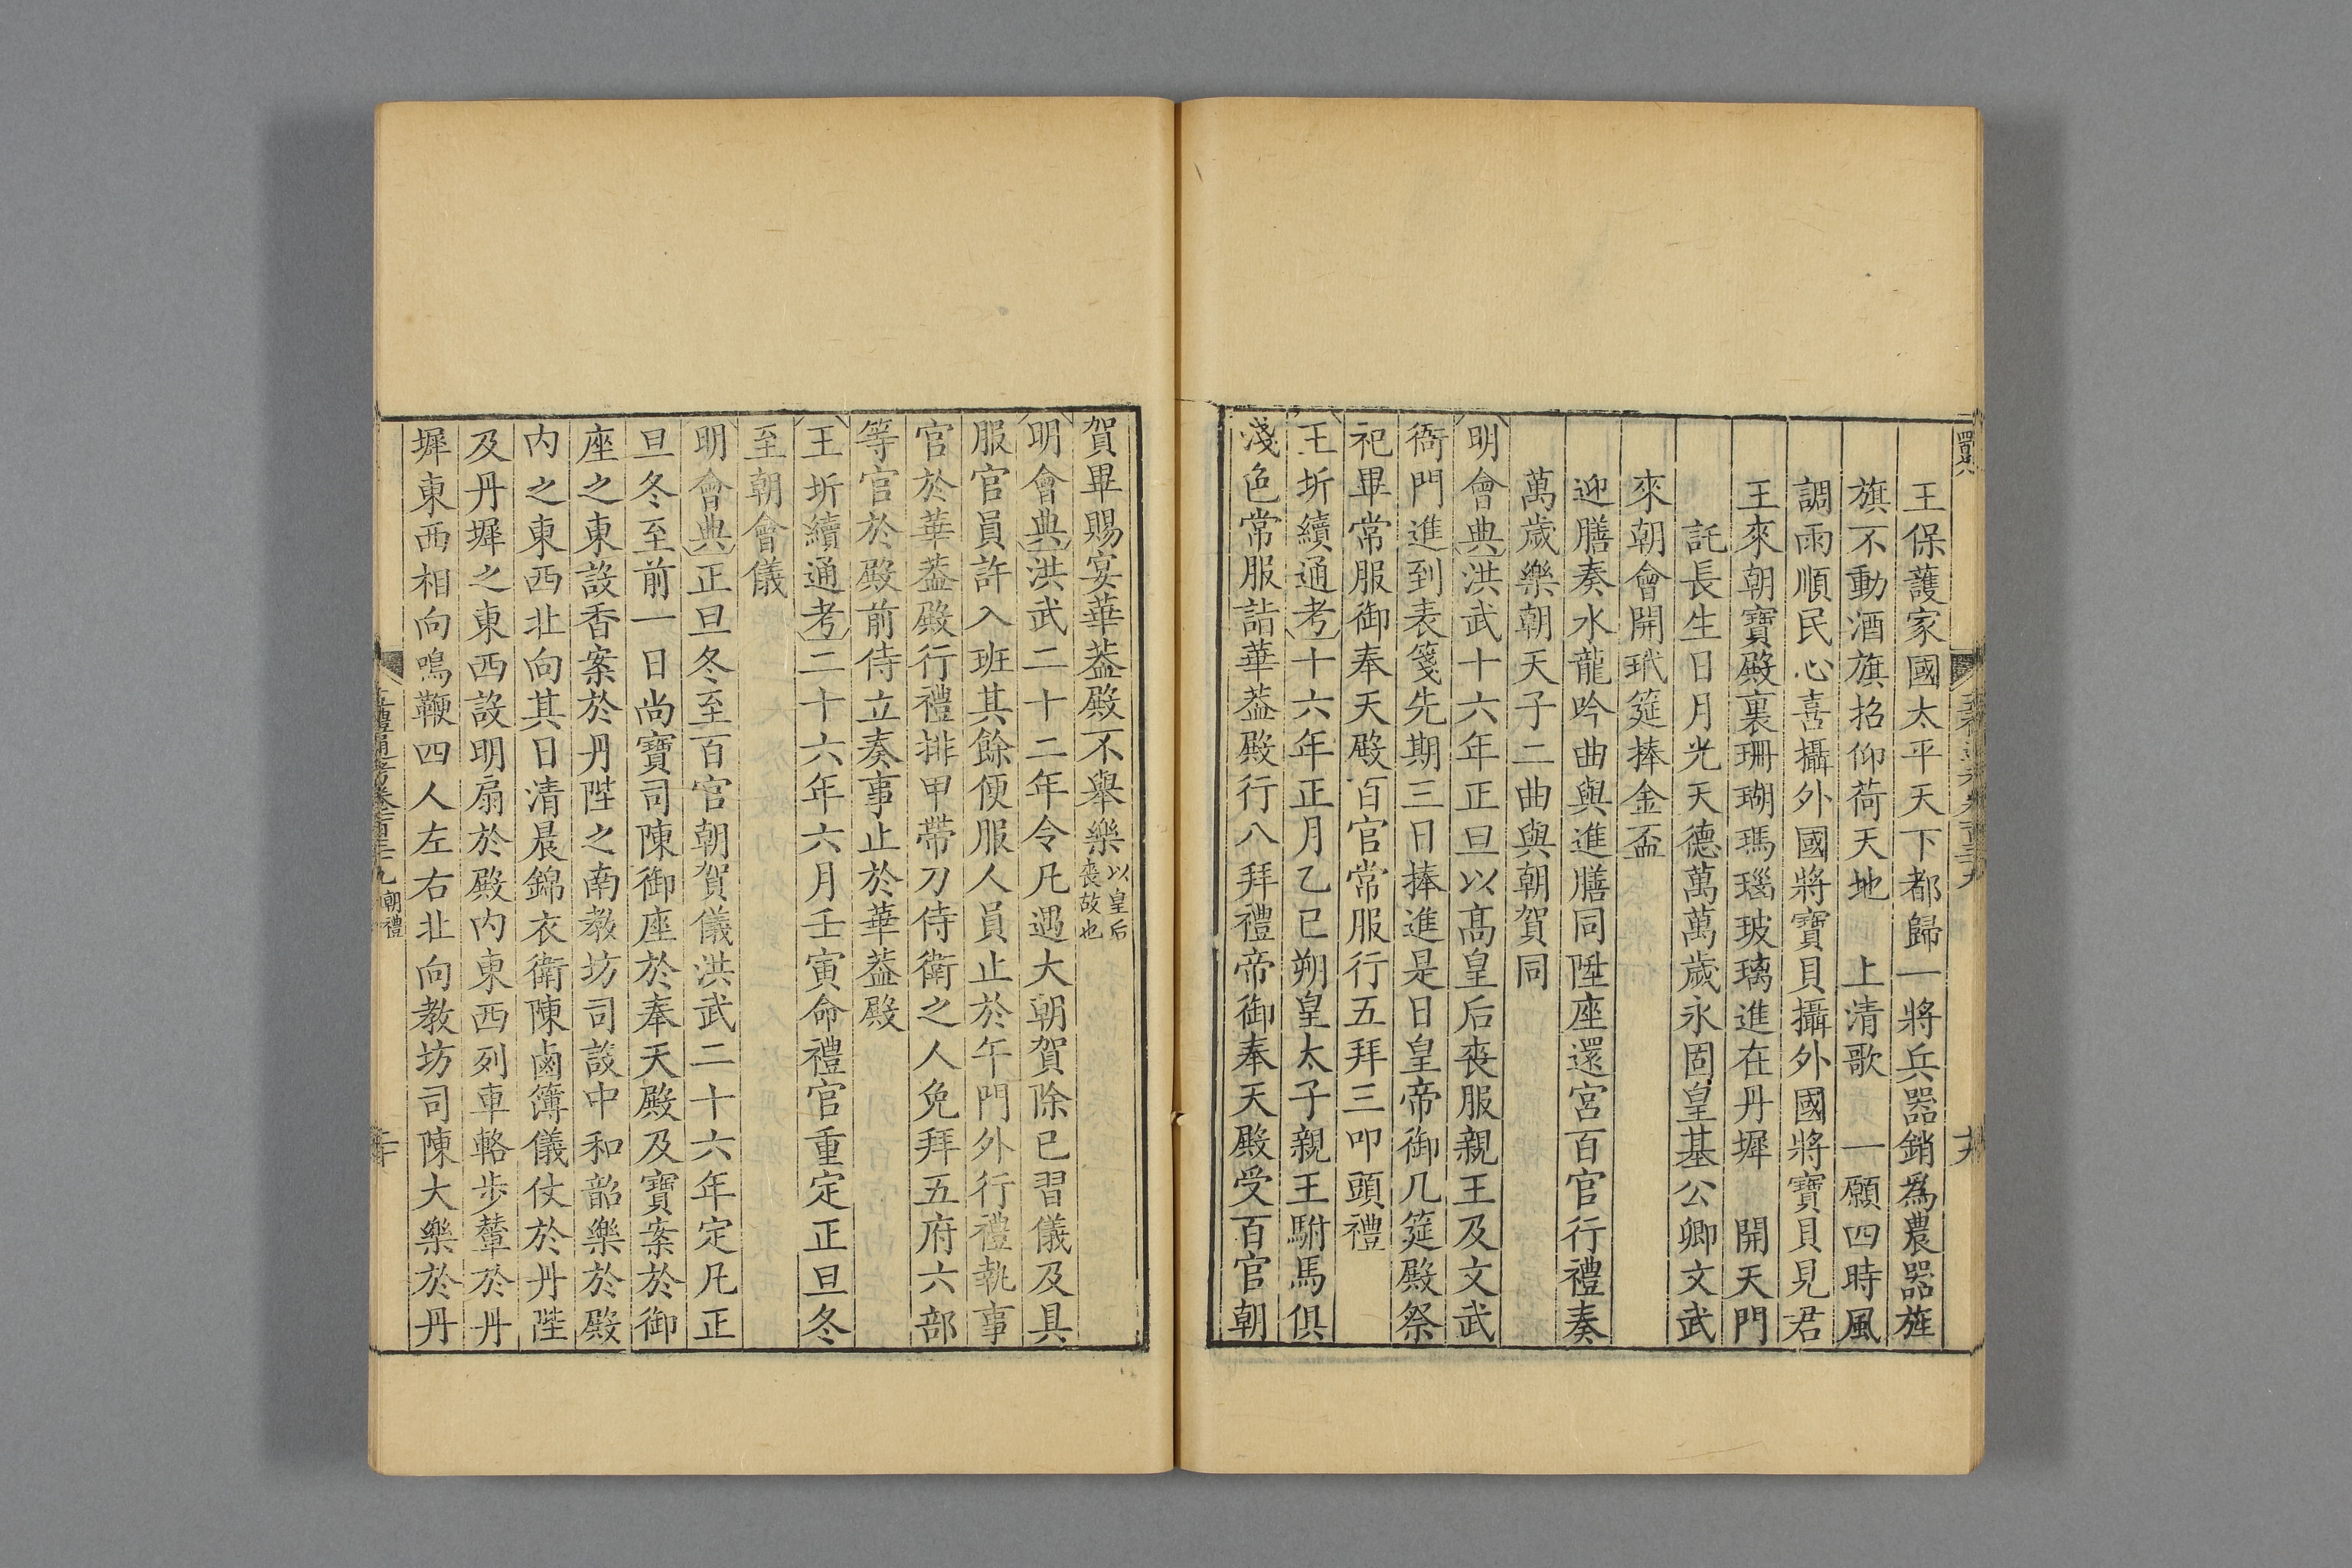 王保護家國太平天下都歸一將兵器銷爲農器旌
旗不動酒旗招仰荷天地 上清歌 一願四時風
調雨順民心喜攝外國將寶貝攝外國將寶貝見君
王來朝寶殿裏珊瑚瑪瑙玻璃進在丹墀 開天門
託長生日月光天德萬萬歲永固皇基公卿文武
來朝會開玳筵捧金盃
迎膳奏水龍吟曲與進膳同陞座還宮百官行禮奏
萬歲樂朝天子二曲與朝賀同
明會典洪武十六年正旦以髙皇后喪服親王及文武
衙門進到表箋先期三日捧進是日皇帝御几筵殿祭
祀畢常服御奉天殿百官常服行五拜三叩頭禮
王圻續通考十六年正月乙巳朔皇太子親王駙馬俱
淺色常服詣華葢殿行八拜禮帝御奉天殿受百官朝
十九
賀畢賜宴華葢殿不舉樂以皇后喪故也
明會典洪武二十二年令凡遇大朝賀除已習儀及具
服官員許入班其餘便服人員止於午門外行禮執事
官於華葢殿行禮排甲帶刀侍衛之人免拜五府六部
等官於殿前侍立奏事止於華葢殿
王圻續通考二十六年六月壬寅命禮官重定正旦冬
至朝會儀
明會典正旦冬至百官朝賀儀洪武二十六年定凡正
旦冬至前一日尚寶司陳御座於奉天殿及寶案於御
座之東設香案於丹陛之南教坊司設中和韶樂於殿
内之東西北向其日清晨錦衣衛陳鹵簿儀仗於丹陛
及丹墀之東西設明扇於殿内東西列車輅步輦於丹
墀東西相向鳴鞭四人左右北向教坊司陳大樂於丹
五禮通考卷一百三十九 朝禮
二十